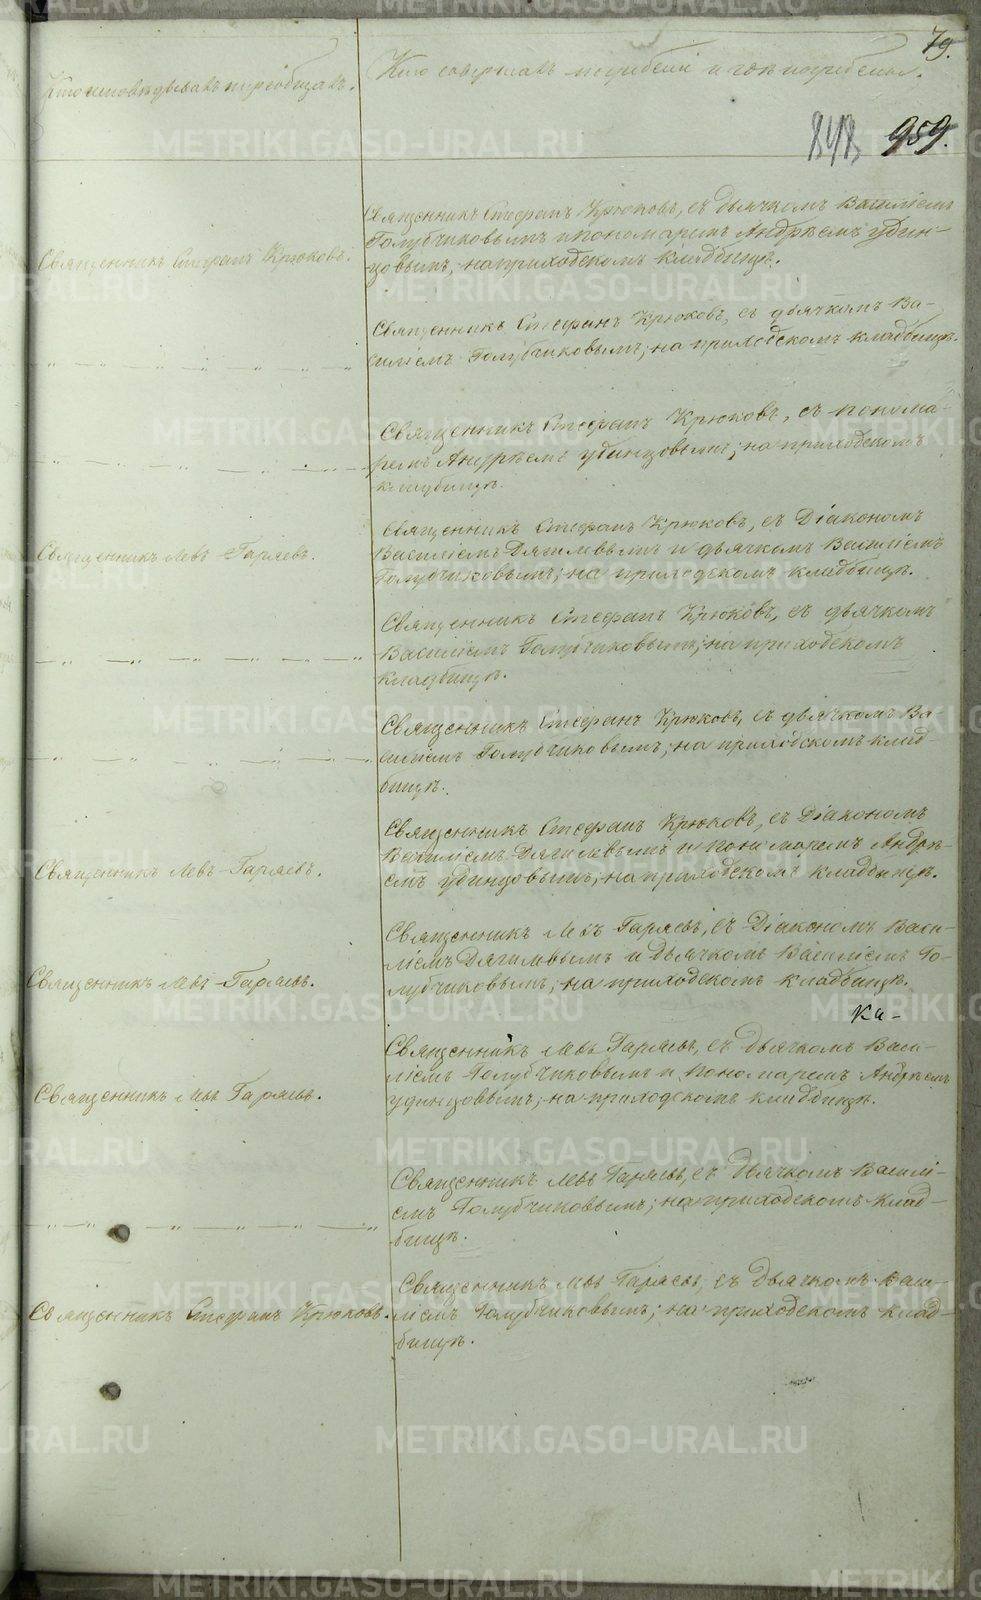 79.
Кто исповѣдывалъ и пріобщалъ.
Кто совершалъ погребеніе и гдѣ погребены.
848, 959.
Священникъ Стефанъ Крюковъ.
Священникъ Стефанъ Крюковъ, съ дьячкомъ Василіемъ
Голубчиковымъ и пономаремъ Андрѣемъ Удин-
цовымъ, на приходскомъ кладбищѣ.
— „ — „ — „ — „ — „ — „
Священникъ Стефанъ Крюковъ, съ дьячкомъ Ва-
силіемъ Голубчиковымъ; на приходскомъ кладбищѣ.
— „ — „ — „ — „ — „ — „
Священникъ Стефанъ Крюковъ, съ понома-
ремъ Андрѣемъ Удинцовымъ; на приходскомъ
кладбищѣ.
Священникъ Левъ Гаряевъ.
Священникъ Стефанъ Крюковъ, съ Діакономъ
Василіемъ Дягилевымъ и дьячкомъ Василіемъ
Голубчиковымъ; на приходскомъ кладбищѣ.
— „ — „ — „ — „ — „ — „
Священникъ Стефанъ Крюковъ, съ дьячкомъ
Василіемъ Голубчиковымъ; на приходскомъ
кладбищѣ.
— „ — „ — „ — „ — „ — „
Священникъ Стефанъ Крюковъ, съ дьячкомъ Ва
силіемъ Голубчиковымъ; на приходскомъ клад
бищѣ.
Священникъ Левъ Гаряевъ.
Священникъ Стефанъ Крюковъ, съ Діакономъ
Василіемъ Дягилевымъ и пономаремъ Андрѣ-
емъ Удинцовымъ; на приходскомъ кладбищѣ.
Священникъ Левъ Гаряевъ.
Священникъ Левъ Гаряевъ, съ Діакономъ Васи-
ліемъ Дягилевымъ и дьячкомъ Василіемъ Го-
лубчиковымъ; на приходскомъ кладбищѣ.
Ка-
Священникъ Левъ Гаряевъ.
Священникъ Левъ Гаряевъ, съ дьячкомъ Васи-
ліемъ Голубчиковымъ и Пономаремъ Андрѣемъ
Удинцовымъ; на приходскомъ кладбищѣ.
— „ — „ — „ — „ — „ — „
Священникъ Левъ Гаряевъ, съ дьячкомъ Василі-
емъ Голубчиковымъ; на приходскомъ клад-
бищѣ.
Священникъ Стефанъ Крюковъ.
Священникъ Левъ Гаряевъ, съ дьячкомъ Васи-
ліемъ Голубчиковымъ; на приходскомъ клад-
бищѣ.
METRIKI.GASO-URAL.RU